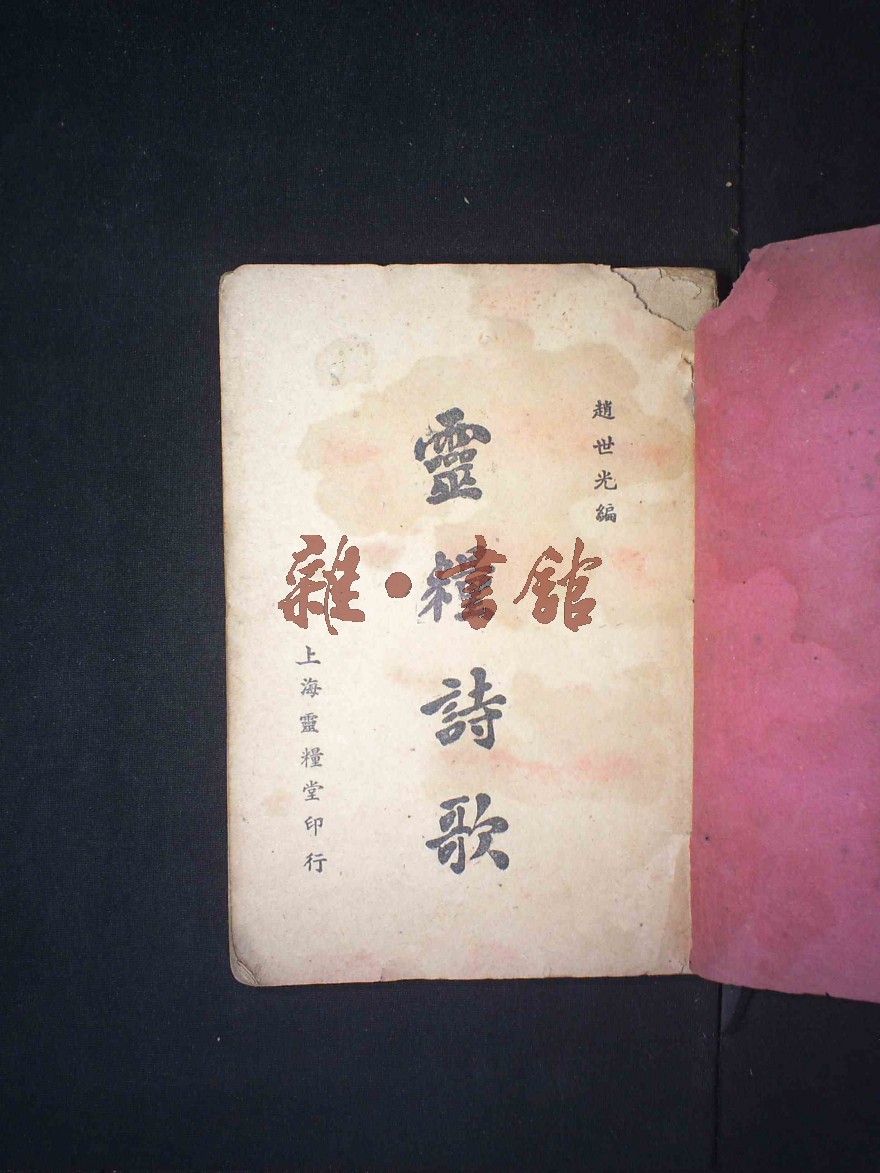 趙世光編
靈糧詩歌
上海靈糧堂印行
雜·書舘